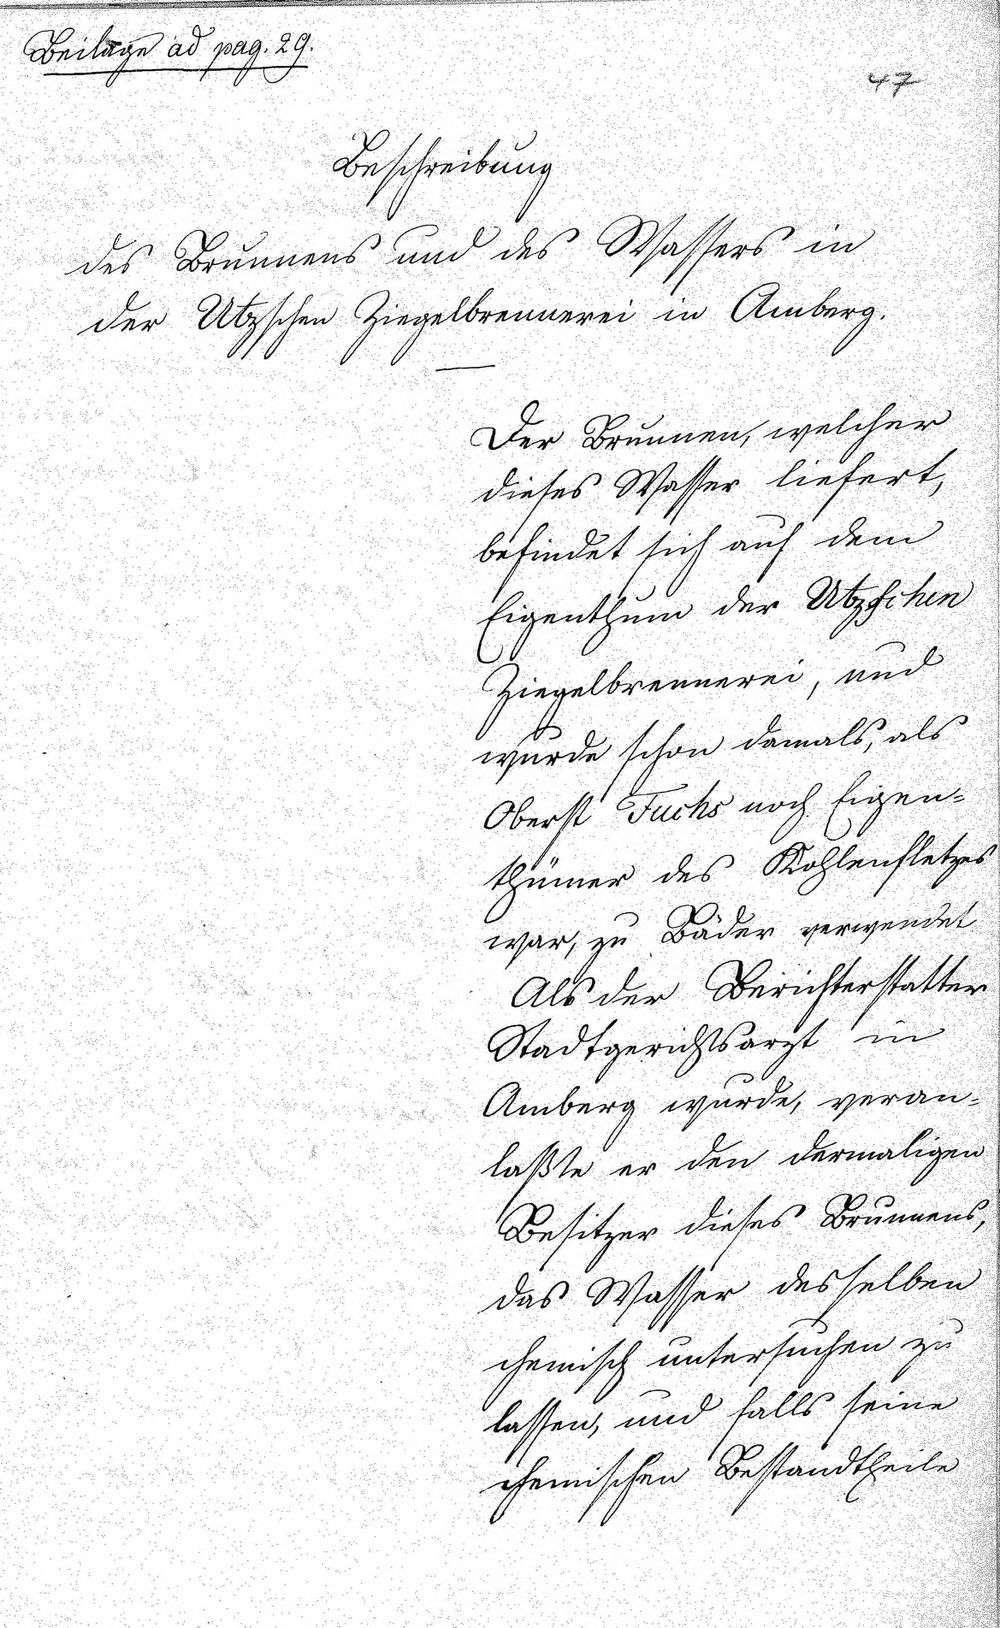 Beilage ad pag. 29.
47
Beschreibung
des Brunnens und des Wassers in
der Utzschen Ziegelbrennerei in Amberg.
Der Brunnen, welcher
dieses Wasser liefert,
befindet sich auf dem
Eigenthum der Utzschen
Ziegelbrennerei, und
wurde schon damals, als
Oberst Fuchs noch Eigen=
thümer des Kohlenfletzes
war, zu Bäder verwendet
Als der Berichterstatter
Stadtgerichtsarzt in
Amberg wurde, veran=
laßte er den dermaligen
Besitzer dieses Brunnens,
das Wasser desselben
chemisch untersuchen zu
lassen, und falls seine
chemischen Bestandtheile